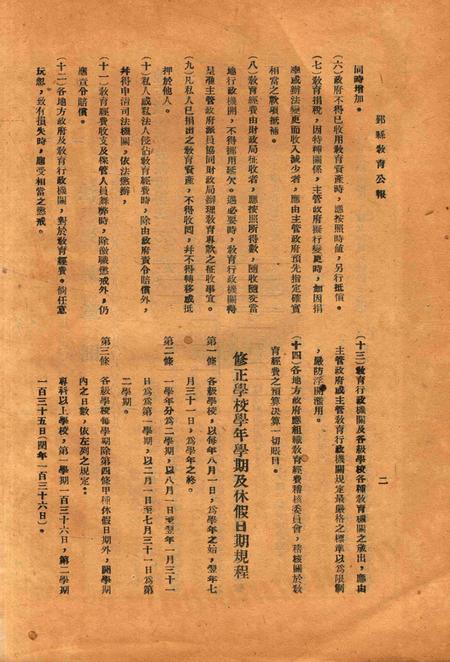 鄞縣教育公報
二
同時增加。
(六)政府不得已收用教育資產時，應按照時値，另行抵償。
(七)教育捐稅，因特種關係，主管政府擬行變更時，如因捐
率或辦法變更而收入減少者，應由主管政府預先指定確實
相當之款項抵補。
(八)教育經費由財政局征收者，應按照所得數，隨收隨交當
地行政機關，不得挪用延欠。遇必要時，教育行政機關得
呈准主管政府派員協同財政局辦理教育專款之征收事宜。
(九)凡私人已捐出之教育資產，不得收回，幷不得轉移或抵
押於他人。
(十)私人或私法人侵佔教育經費時，除由政府責令賠償外，
幷得申請司法機關，依法懲辦，
(十一)教育經費收支及保管人員舞弊時，除撤職懲戒外，仍
應責令賠償。
(十二)各地方政府及教育行政機關，對於教育經費。倘任意
玩忽，致有損失時，應受相當之懲戒。
(十三)教育行政機關及各級學校各種教育機關之歲出，應由
主管政府或主管教育行政機關規定最嚴格之標準以爲限制
，嚴防浮開濫用。
(十四)各地方政府應組織教育經費稽核委員會，稽核關於教
育經費之預算決算一切賬目。
修正學校學年學期及休假日期規程
第一條　各級學校，以每年八月一日，爲學年之始，翌年七
月三十一日，爲學年之終。
第二條　一學年分爲二學期，以八月一日至翌年一月三十一
日爲爲第一學期，以二月一日至七月三十一日爲第
二學期。
第三條　各級學校每學期除第四條甲種休假日期外，開學期
內之日數，依左列之規定。
專科以上學校，第一學期一百三十六日，第二學期
一百三十五日(閏年一百三十六日)。